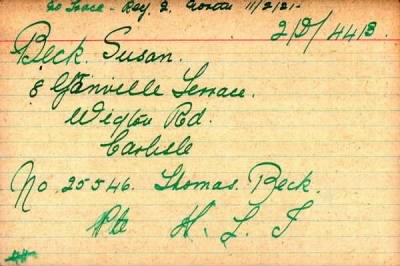 No Trace - Reg. 2. North 11/2/21-
2/D/4418.
Beck. Susan.
8 Granville Terrace.
Wigton Rd.
Carlisle
No 25546. Thomas. Beck.
Pte H. L. I